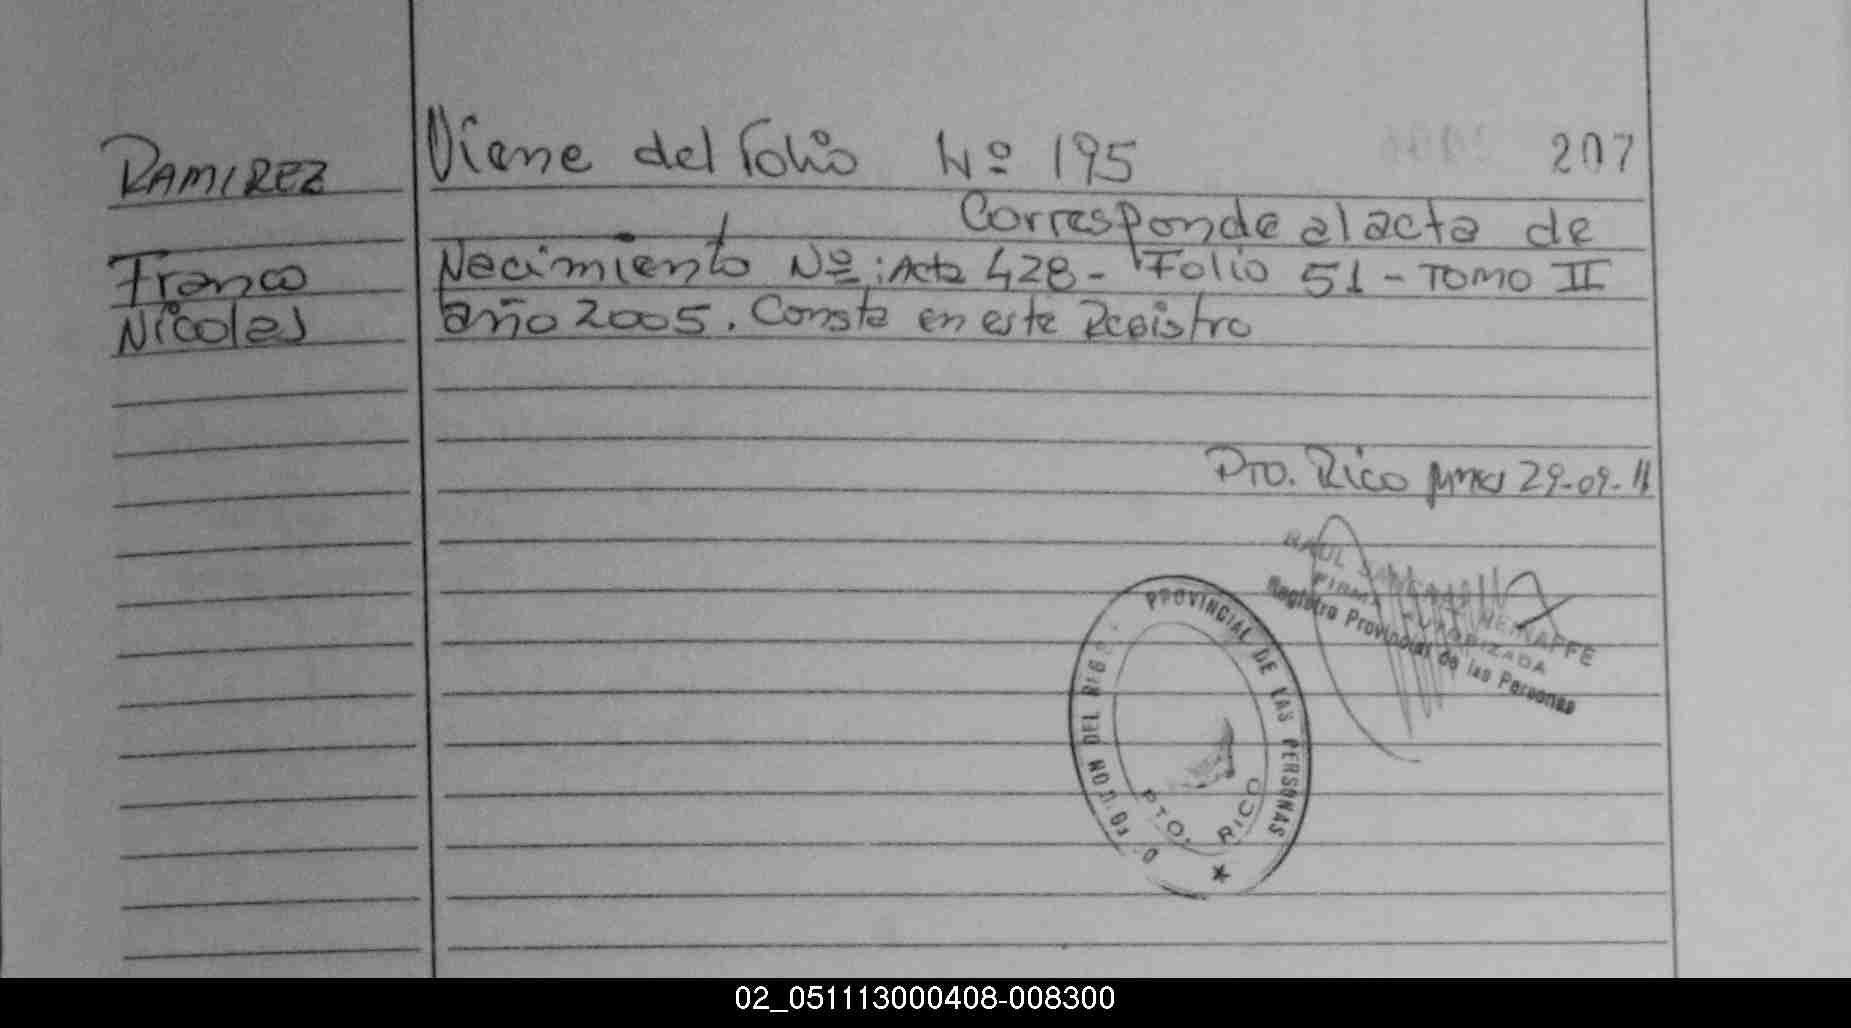 RAMIREZ
Franco
Nicolas
Viene del folio Nº 195
207
Corresponde al acta de
Nacimiento Nº: Acta 428 - Folio 51 - Tomo II
año 2005. Consta en este Registro
Pto. Rico 29-09-11
RAUL
FIRMA AUTORIZADA
Registro Provincial de las Personas
PROVINCIAL DE LAS PERSONAS
DEL
PTO. RICO
02_051113000408-008300